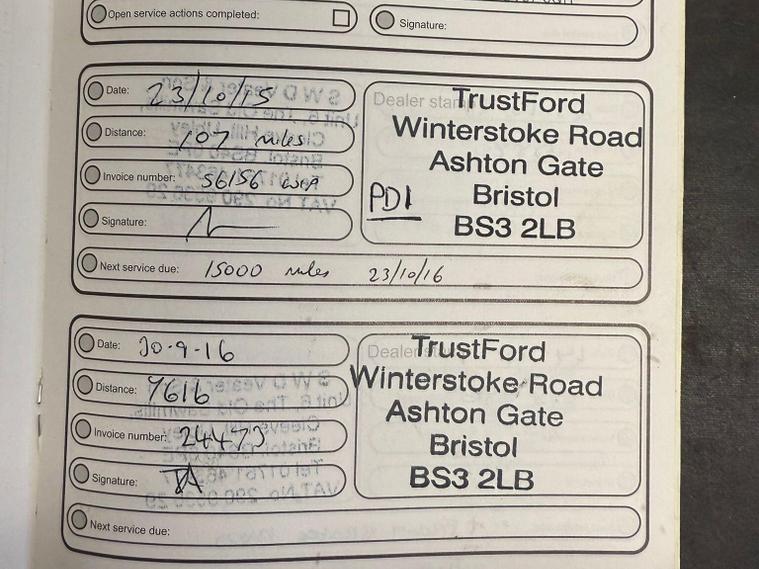 Open service actions completed:
Signature:
Date: 23/10/15
Distance: 107 miles
Invoice number: 56156
Signature:
Dealer stam
TrustFord
Winterstoke Road
Ashton Gate
Bristol
BS3 2LB
PDI
Next service due: 15000 miles 23/10/16
Date: 30-9-16
Distance: 7616
Invoice number: 24473
Signature:
Dealer stam
TrustFord
Winterstoke Road
Ashton Gate
Bristol
BS3 2LB
Next service due: